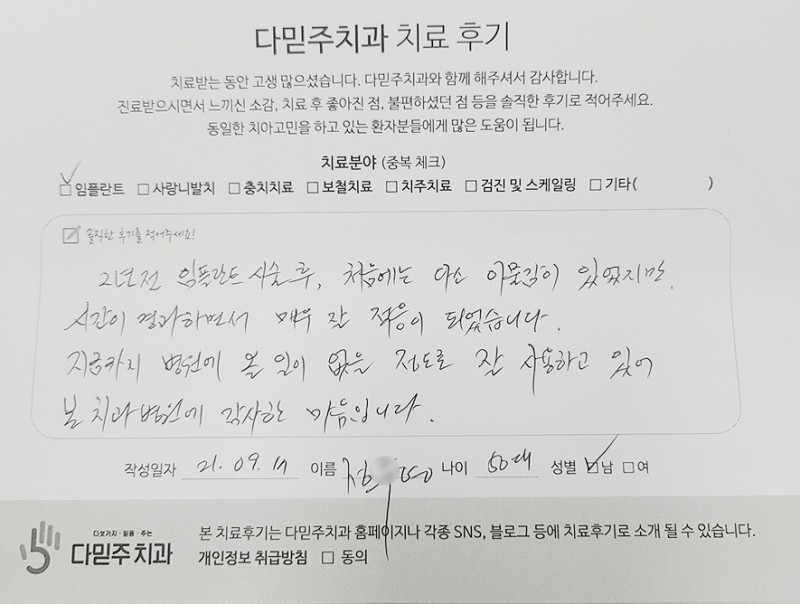 다믿주치과 치료 후기
치료받는 동안 고생 많으셨습니다. 다믿주치과와 함께 해주셔서 감사합니다.
진료받으시면서 느끼신 소감, 치료 후 좋아진 점, 불편하셨던 점 등을 솔직한 후기로 적어주세요.
동일한 치아고민을 하고 있는 환자분들에게 많은 도움이 됩니다.
치료분야 (중복 체크)
임플란트 사랑니발치 충치치료 보철치료 치주치료 검진 및 스케일링 기타( )
솔직한 후기를 적어주세요!
2년전 임플란트 시술 후, 처음에는 다소 이물감이 있었지만,
시간이 경과하면서 매우 잘 적응이 되었습니다.
지금까지 병원에 올 일이 없을 정도로 잘 사용하고 있어
본 치과병원에 감사한 마음입니다.
작성일자 21. 09. 이름 나이 50대 성별 남 여
다섯가지·믿음·주는
다믿주치과
본 치료후기는 다믿주치과 홈페이지나 각종 SNS, 블로그 등에 치료후기로 소개 될 수 있습니다.
개인정보 취급방침 동의